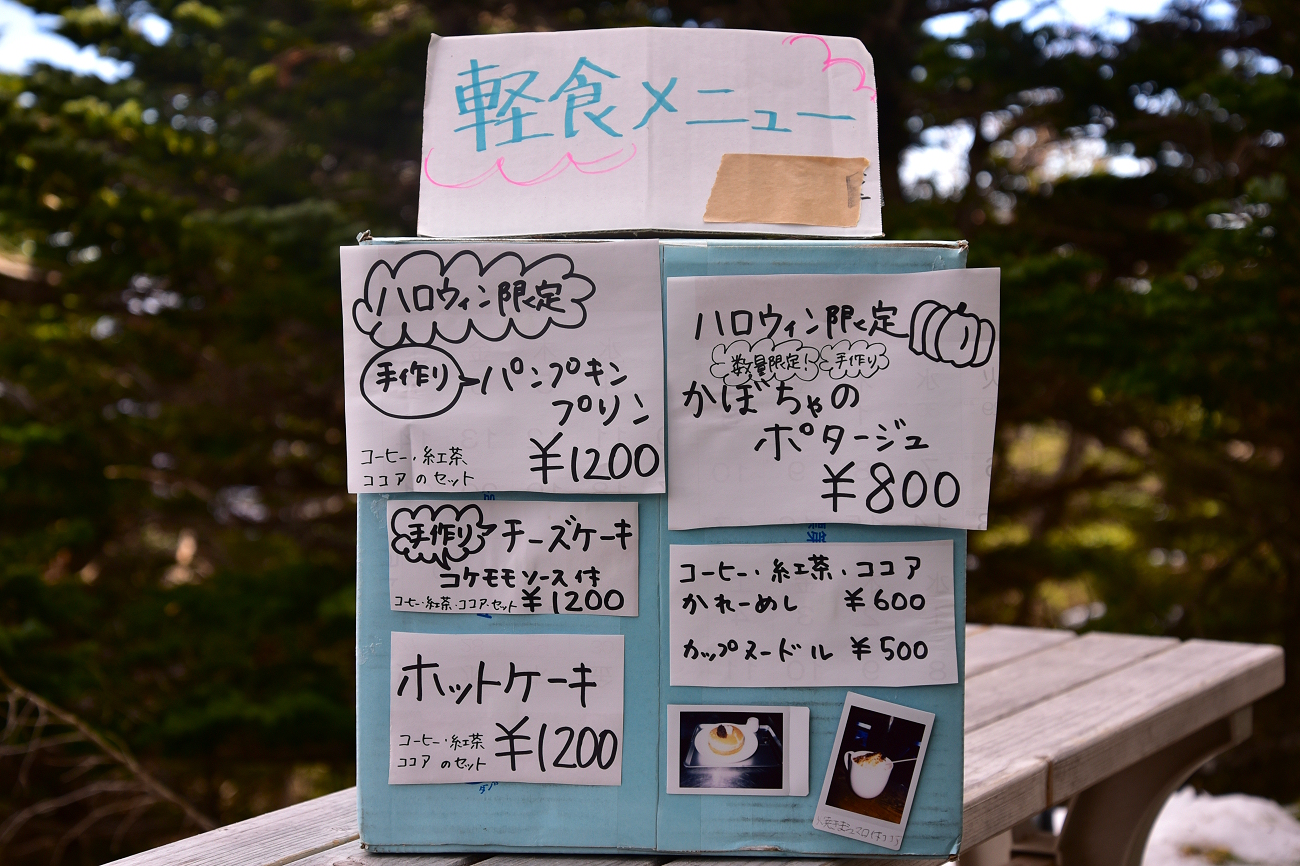 軽食メニュー
ハロウィン限定
手作り
パンプキン
プリン
コーヒー・紅茶
ココアのセット
¥1200
ハロウィン限定
数量限定!
手作り
かぼちゃの
ポタージュ
¥800
手作り
チーズケーキ
コケモモソース付
コーヒー・紅茶・ココア・セット ¥1200
コーヒー・紅茶・ココア
かれーめし ¥600
カップヌードル ¥500
ホットケーキ
コーヒー・紅茶
ココアのセット
¥1200